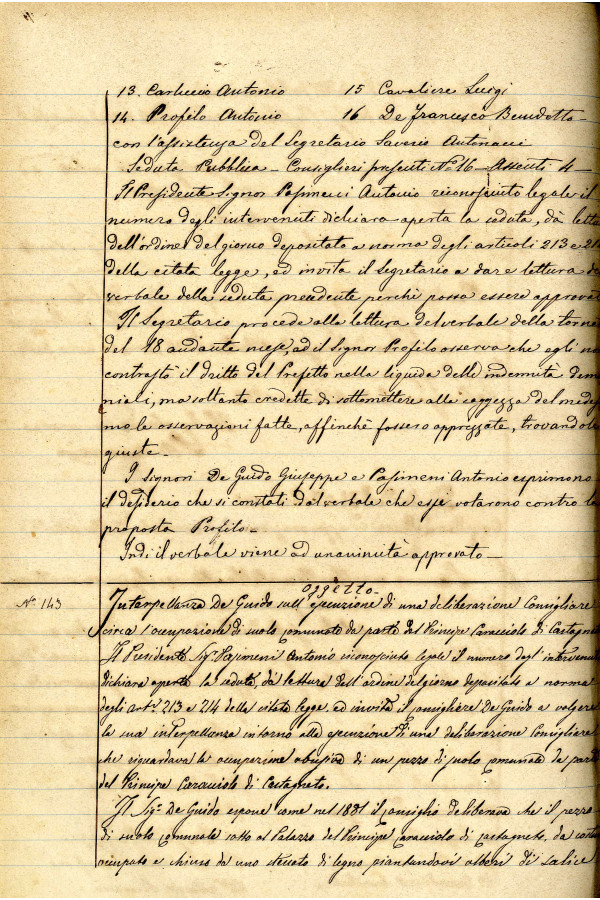 13. Carluccio Antonio 15 Cavaliere Luigi
14. Profilo Antonio 16 De Francesco Benedetto
con l'assistenza del Segretario Saverio Antonaci
Seduta Pubblica – Consiglieri presenti N° 16 – Assenti 4 –
Il Presidente Signor Pasimeni Antonio riconosciuto legale il
numero degli intervenuti dichiara aperta la seduta, dà lettu
dell'ordine del giorno depositato a norma degli articoli 213 e 214
della citata legge, ed invita il Segretario a dare lettura de
verbale della seduta precedente perchè possa essere approvat
Il Segretario procede alla lettura del verbale della torna
del 18 andante mese, ad il Signor Profilo osserva che egli no
contrastò il dritto del Prefetto nella liquida delle indennità dema
niali, ma soltanto credette di sottomettere alla saggezza del mede
mo le osservazioni fatte, affinchè fossero apprezzate, trovandole
giuste –
I Signori De Guido Giuseppe e Pasimeni Antonio esprimono
il desiderio che si constati dal verbale che essi votarono contro la
proposta Profilo –
Indi il verbale viene ad unanimità approvato –
Oggetto –
N° 143 Interpellanza De Guido sull'esecuzione di una deliberazione Consigliare
circa l'occupazione di suolo comunale da parte del Principe Caracciolo di Castagneto
Il Presidente Sig. Pasimeni Antonio riconosciuto legale il numero degl'intervenuti
dichiara aperta la seduta, dà lettura dell'ordine del giorno depositato a norma
degli art. 213 e 214 della citata legge, ed invita il consigliere De Guido a volgere
la sua interpellanza intorno alla esecuzione di una deliberazione Consigliare
che riguardava la occupazione abusiva di un pezzo di suolo comunale da parte
del Principe Caracciolo di Castagneto.
Il Sig. De Guido espone come nel 1881 il Consiglio deliberava che il pezzo
di suolo comunale sotto al Palazzo del Principe Caracciolo di Castagneto, da costui
occupato e chiuso da uno steccato di legno piantandovi alberi di salice